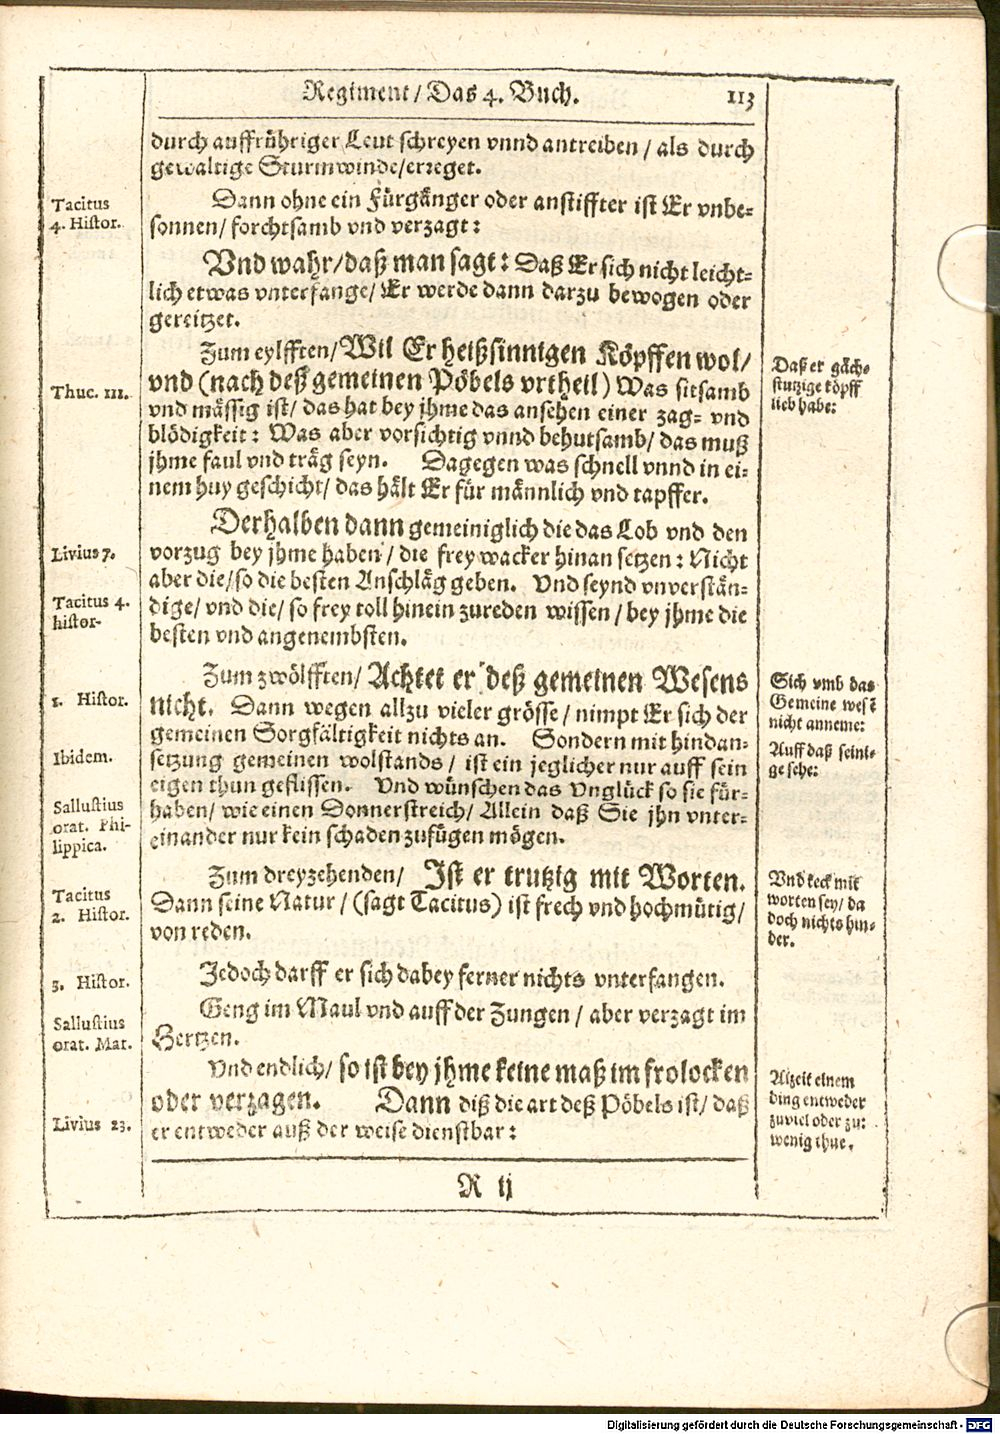 Regiment / Das 4. Buch. 113
durch auffrühriger Leut schreyen vnnd antreiben / als durch
gewaltige Sturmwinde/erreget.
Tacitus
4. Histor.
Dann ohne ein Fürgänger oder anstiffter ist Er vnbe-
sonnen/ forchtsamb vnd verzagt:
Vnd wahr/daß man sagt: Daß Er sich nicht leicht-
lich etwas vnterfange/ Er werde dann darzu bewogen oder
gereitzet.
Zum eylfften/ Wil Er heißsinnigen Köpffen wol/
Thuc. III.
vnd (nach deß gemeinen Pöbels vrtheil) Was sitsamb
vnd mässig ist/ das hat bey jhme das ansehen einer zag- vnd
blödigkeit: Was aber vorsichtig vnnd behutsamb/ das muß
jhme faul vnd träg seyn. Dagegen was schnell vnnd in ei-
nem huy geschicht/ das hält Er für männlich vnd tapffer.
Daß er gäch-
stutzige köpff
lieb habe:
Derhalben dann gemeiniglich die das Lob vnd den
Livius 7.
vorzug bey jhme haben / die frey wacker hinan setzen: Nicht
aber die/so die besten Anschläg geben. Vnd seynd vnverstän-
Tacitus 4.
histor-
dige/ vnd die/ so frey toll hinein zureden wissen / bey jhme die
besten vnd angenembsten.
Zum zwölfften/ Achtet er deß gemeinen Wesens
1. Histor.
nicht. Dann wegen allzu vieler grösse / nimpt Er sich der
gemeinen Sorgfältigkeit nichts an. Sondern mit hindan-
Ibidem.
setzung gemeinen wolstands / ist ein jeglicher nur auff sein
eigen thun geflissen. Vnd wünschen das Vnglück so sie für-
Sallustius
orat. Phi-
lippica.
haben/ wie einen Donnerstreich/ Allein daß Sie jhn vnter-
einander nur kein schaden zufügen mögen.
Sich vmb das
Gemeine wesẽ
nicht anneme:
Auff daß seini-
ge sehe:
Zum dreyzehenden/ Ist er trutzig mit Worten.
Tacitus
2. Histor.
Dann seine Natur / (sagt Tacitus) ist frech vnd hochmütig/
von reden.
Vnd keck mit
worten sey/ da
doch nichts hin-
der.
3. Histor.
Jedoch darff er sich dabey ferner nichts vnterfangen.
Sallustius
orat. Mar.
Geng im Maul vnd auff der Zungen / aber verzagt im
Hertzen.
Vnd endlich/ so ist bey jhme keine maß im frolocken
oder verzagen. Dann diß die art deß Pöbels ist/ daß
Livius 23.
er entweder auß der weise dienstbar:
Alzeit einem
ding entweder
zuviel oder zu:
wenig thue.
R ij
Digitalisierung gefördert durch die Deutsche Forschungsgemeinschaft - DFG